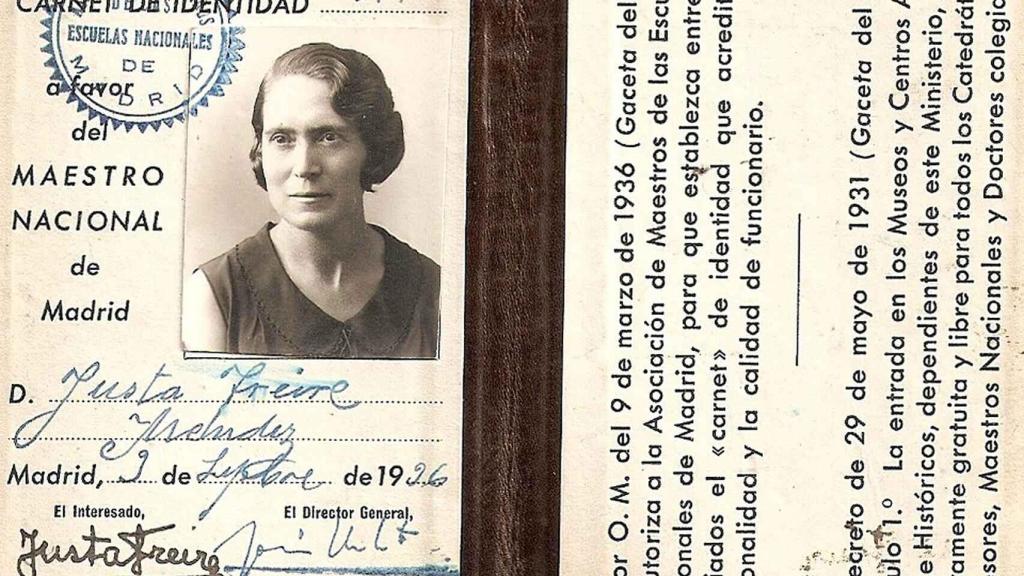 CARNET DE IDENTIDAD
ESCUELAS NACIONALES
DE
MADRID
a favor
del
MAESTRO
NACIONAL
de
Madrid
D. Justa Freire
Méndez
Madrid, 2 de Sepbre de 1936
El Interesado,
El Director General,
Justa Freire
or O. M. del 9 de marzo de 1936 (Gaceta del
utoriza a la Asociación de Maestros de las Escu
onales de Madrid, para que establezca entre
iados el «carnet» de identidad que acredit
onalidad y la calidad de funcionario.
ecreto de 29 de mayo de 1931 (Gaceta del
ulo 1.º La entrada en los Museos y Centros A
e Históricos, dependientes de este Ministerio,
amente gratuita y libre para todos los Catedrát
sores, Maestros Nacionales y Doctores colegia